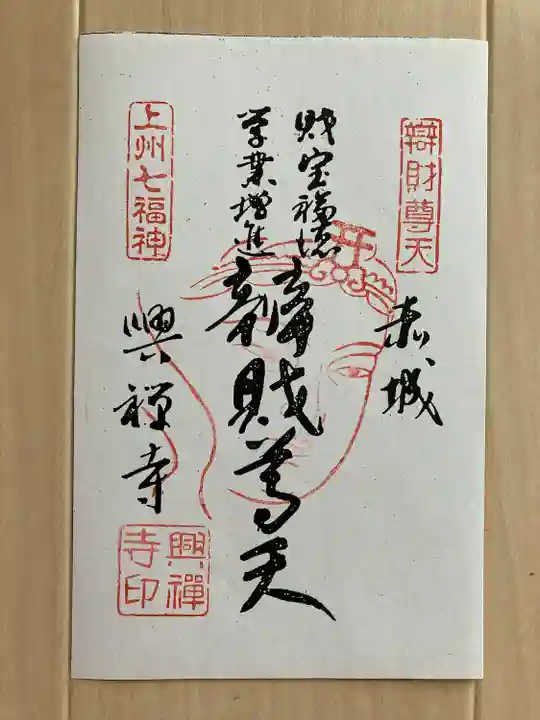 辯財尊天
赤城
財宝福徳
学業増進
辯財尊天
上州七福神
興禅寺
興禪寺印